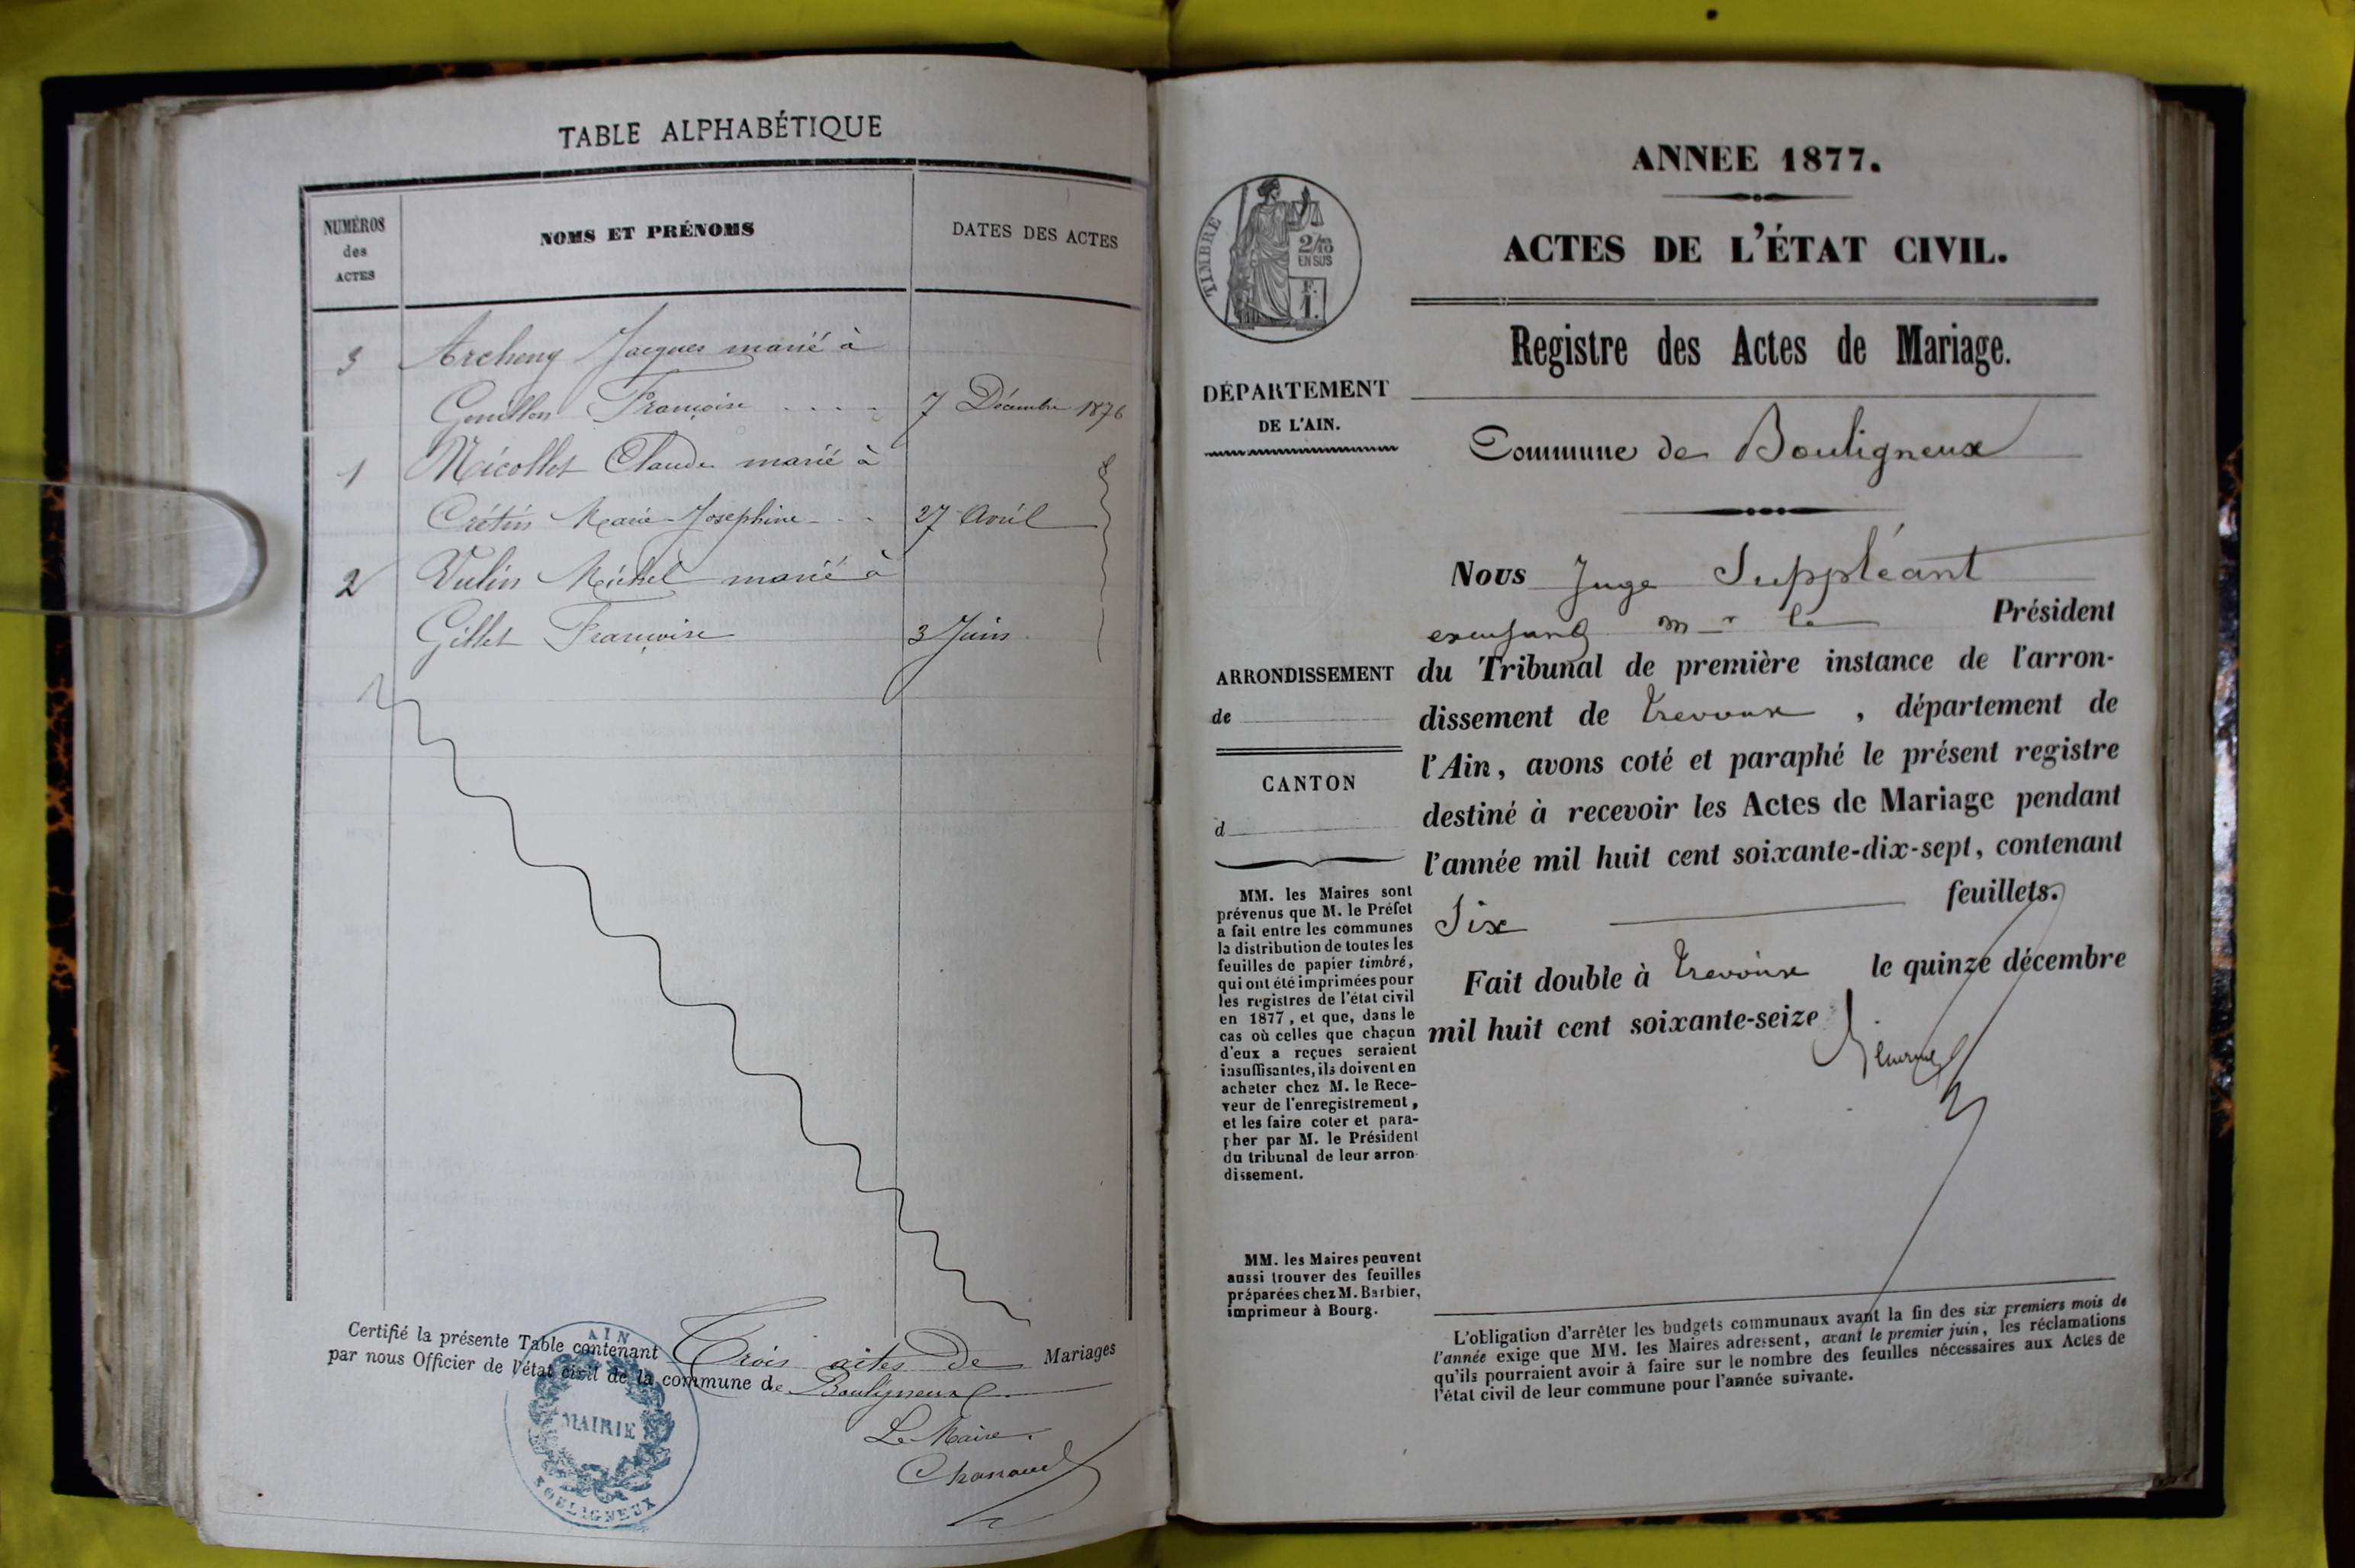 TABLE ALPHABÉTIQUE
NUMÉROS
des
ACTES
NOMS ET PRÉNOMS
DATES DES ACTES
3 Archeny Jacques marié à
Gouillon Françoise 7 Décembre 1876
1 Nicollet Claude marié à
Crétin Marie-Josephine 27 Avril
2 Vulin Michel marié à
Gillet Françoise 3 Juin
Certifié la présente Table contenant Trois actes de Mariages
par nous Officier de l'état civil de la commune de Bouligneux
Le Maire
AIN
MAIRIE
BOULIGNEUX
ANNEE 1877.
ACTES DE L'ÉTAT CIVIL.
TIMBRE
2/10
EN SUS
F.
1.
Registre des Actes de Mariage.
DÉPARTEMENT
DE L'AIN.
Commune de Bouligneux
Nous Juge Suppléant
Mr le Président
du Tribunal de première instance de l'arron-
dissement de Trevoux, département de
l'Ain, avons coté et paraphé le présent registre
destiné à recevoir les Actes de Mariage pendant
l'année mil huit cent soixante-dix-sept, contenant
Six feuillets.
Fait double à Trevoux le quinze décembre
mil huit cent soixante-seize
ARRONDISSEMENT
de
CANTON
d
MM. les Maires sont
prévenus que M. le Préfet
a fait entre les communes
la distribution de toutes les
feuilles de papier timbré,
qui ont été imprimées pour
les registres de l'état civil
en 1877, et que, dans le
cas où celles que chaçun
d'eux a reçues seraient
insuffisantes, ils doivent en
acheter chez M. le Rece-
veur de l'enregistrement,
et les faire coter et para-
pher par M. le Président
du tribunal de leur arron-
dissement.
MM. les Maires peuvent
aussi trouver des feuilles
préparées chez M. Barbier,
imprimeur à Bourg.
L'obligation d'arrêter les budgets communaux avant la fin des six premiers mois de
l'année exige que MM. les Maires adressent, avant le premier juin, les réclamations
qu'ils pourraient avoir à faire sur le nombre des feuilles nécessaires aux Actes de
l'état civil de leur commune pour l'année suivante.